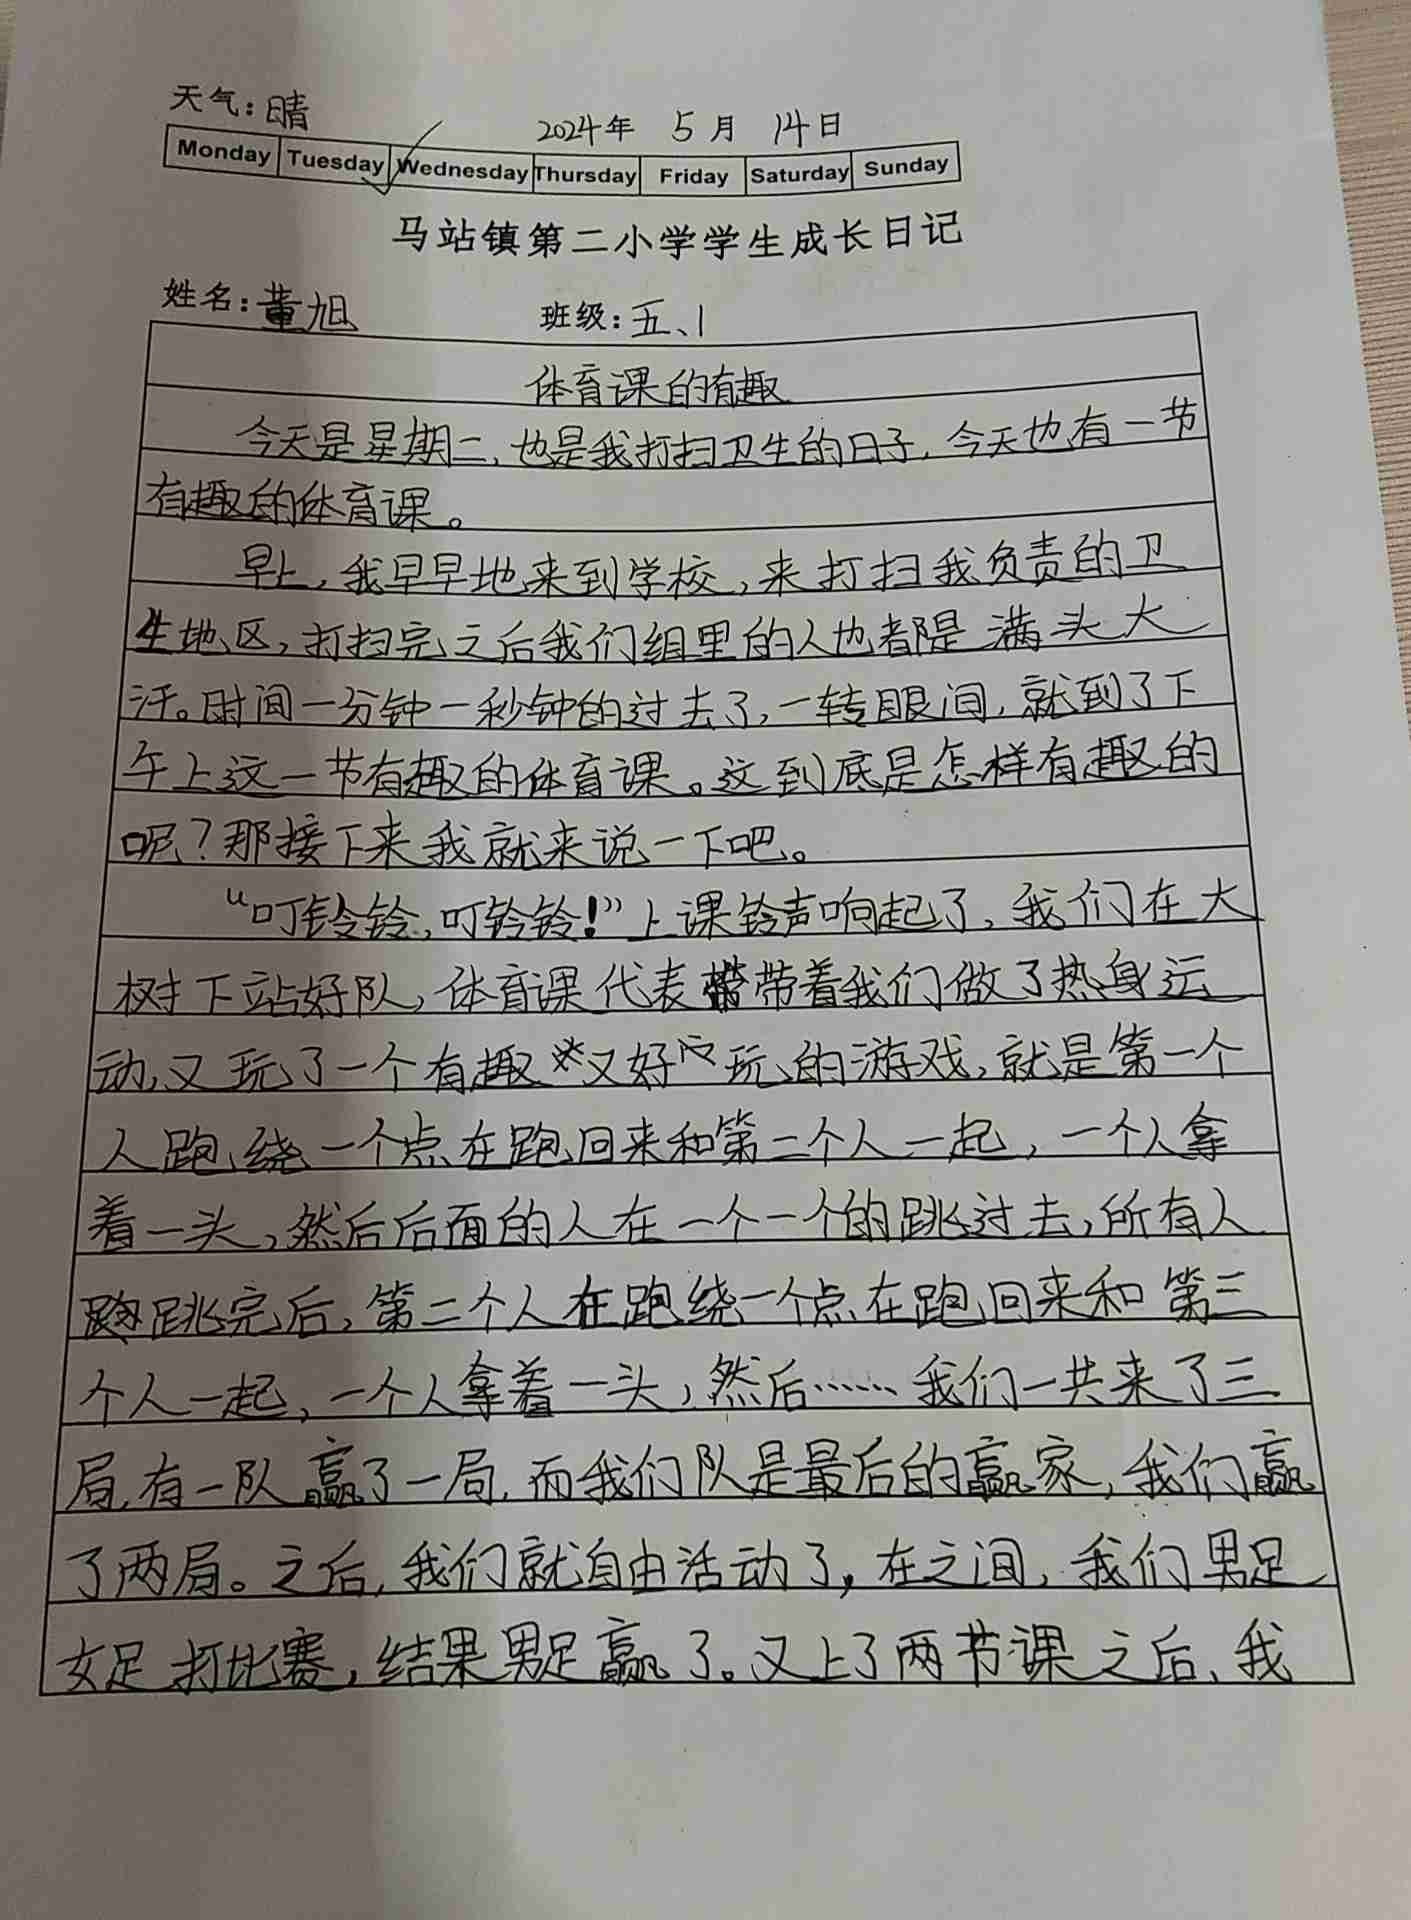 天气:晴
2024年 5月 14日
Monday Tuesday Wednesday Thursday Friday Saturday Sunday
马站镇第二小学学生成长日记
姓名:董旭 班级:五、1
体育课的有趣
今天是星期二,也是我打扫卫生的日子,今天也有一节
有趣的体育课。
早上,我早早地来到学校,来打扫我负责的卫
生地区,打扫完之后我们组里的人也都是满头大
汗。时间一分钟一秒钟的过去了,一转眼间,就到了下
午上这一节有趣的体育课。这到底是怎样有趣的
呢?那接下来我就来说一下吧。
“叮铃铃,叮铃铃!”上课铃声响起了,我们在大
树下站好队,体育课代表带着我们做了热身运
动,又玩了一个有趣又好玩的游戏,就是第一个
人跑绕一个点在跑回来和第二个人一起,一个人拿
着一头,然后后面的人在一个一个的跳过去,所有人
跳完后,第二个人在跑绕一个点在跑回来和第三
个人一起,一个人拿着一头,然后……我们一共来了三
局,有一队赢了一局,而我们队是最后的赢家,我们赢
了两局。之后,我们就自由活动了,在之间,我们男足
女足打比赛,结果男足赢了。又上了两节课之后,我